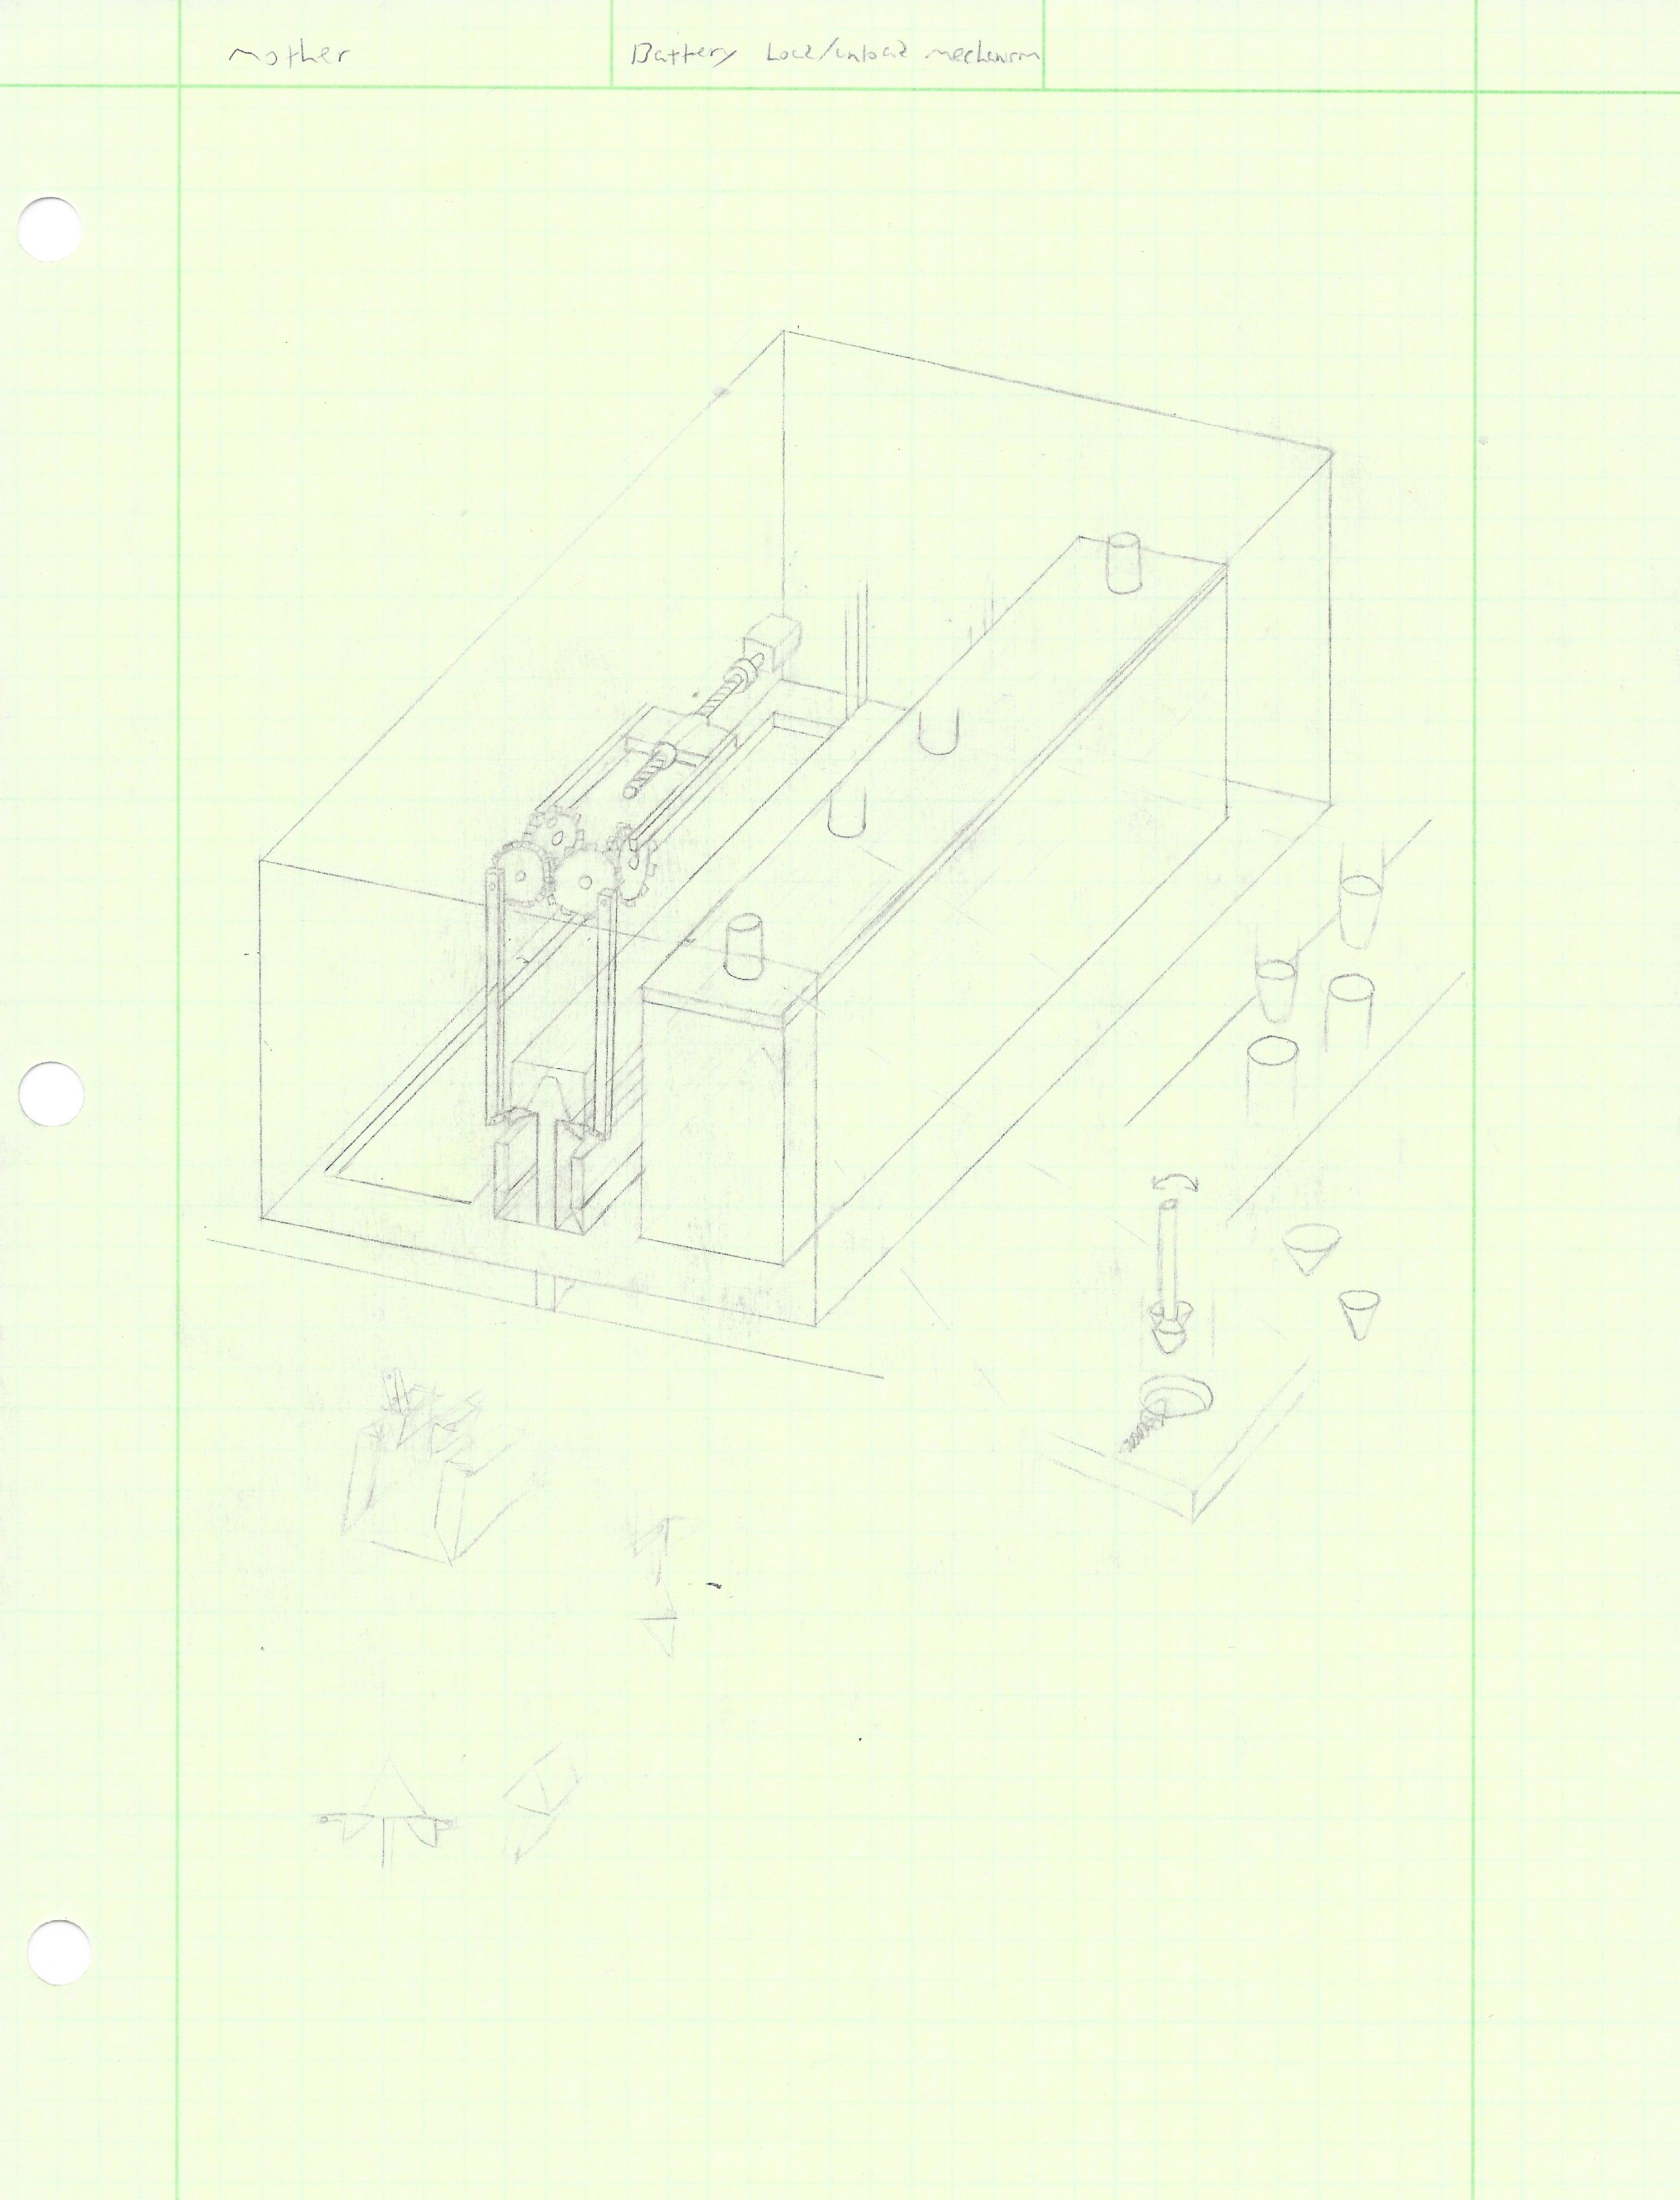 Mother
Battery Load/unload mechanism